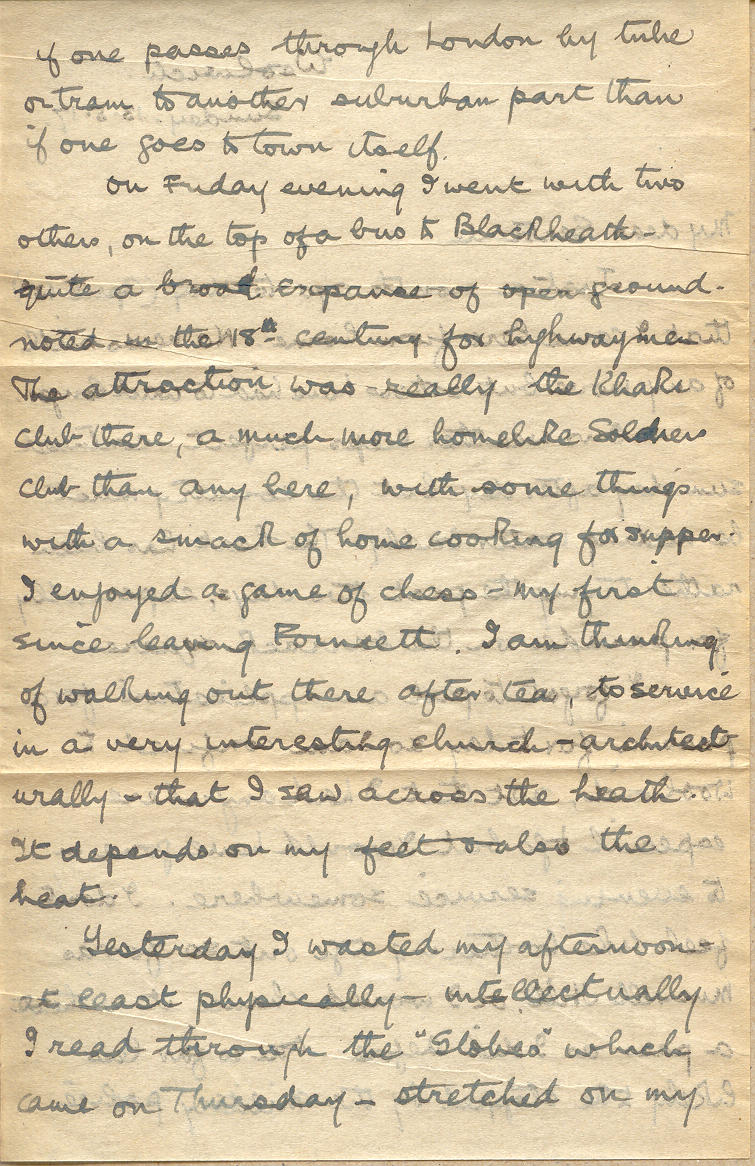 if one passes through London by tube
or tram to another suburban part than
if one goes to town itself.
On Friday evening I went with two
others, on the top of a bus to Blackheath -
quite a broad expanse of open ground -
noted in the 18th century for highwaymen
The attraction was really the Khaki
Club there, a much more homelike Soldiers
Club than any here, with some things
with a smack of home cooking for supper.
I enjoyed a game of chess - my first
since leaving Forncett. I am thinking
of walking out there after tea, to service
in a very interesting church - architect
urally - that I saw across the heath.
It depends on my feet & also the
heat.
Yesterday I wasted my afternoon -
at least physically - intellectually
I read through the "Globes" which
came on Thursday - stretched on my